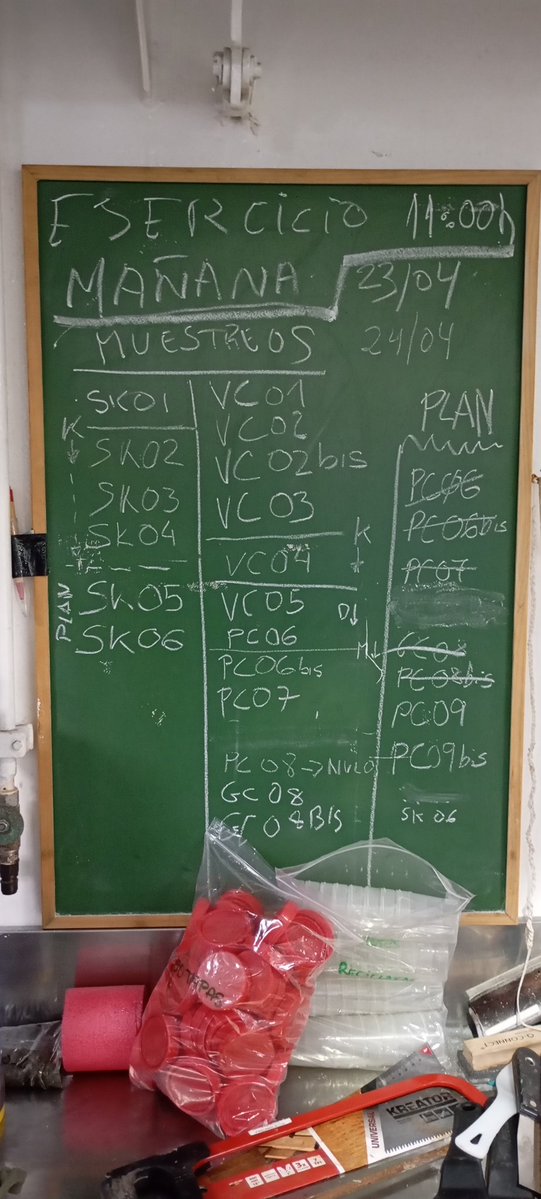 ESERCICIO 11:00h
MAÑANA 23/04
MUESTREOS 24/04
SK01
K
SK02
SK03
SK04
PLAN
SK05
SK06
VC01
VC02
VC02bis
VC03
K
VC04
VC05
D
PC06
M
PC06bis
PC07
PC08→NULO
GC08
GC08BIS
PLAN
PC06
PC06bis
PC07
GC08
PC08bis
PC09
PC09bis
SK06
Q-CONNECT
KREATOR
UNIVERSAL